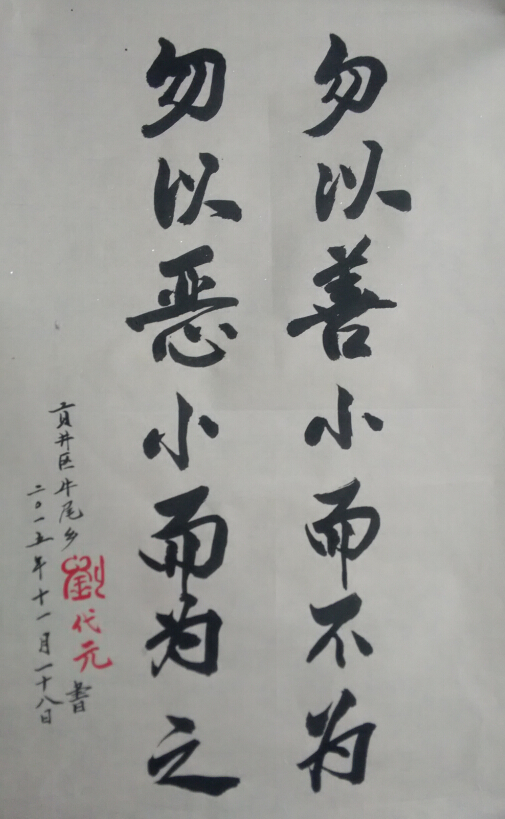 勿以善小而不为
勿以恶小而为之
贡井区牛尾乡劉代元書
二〇一五年十一月一十八日